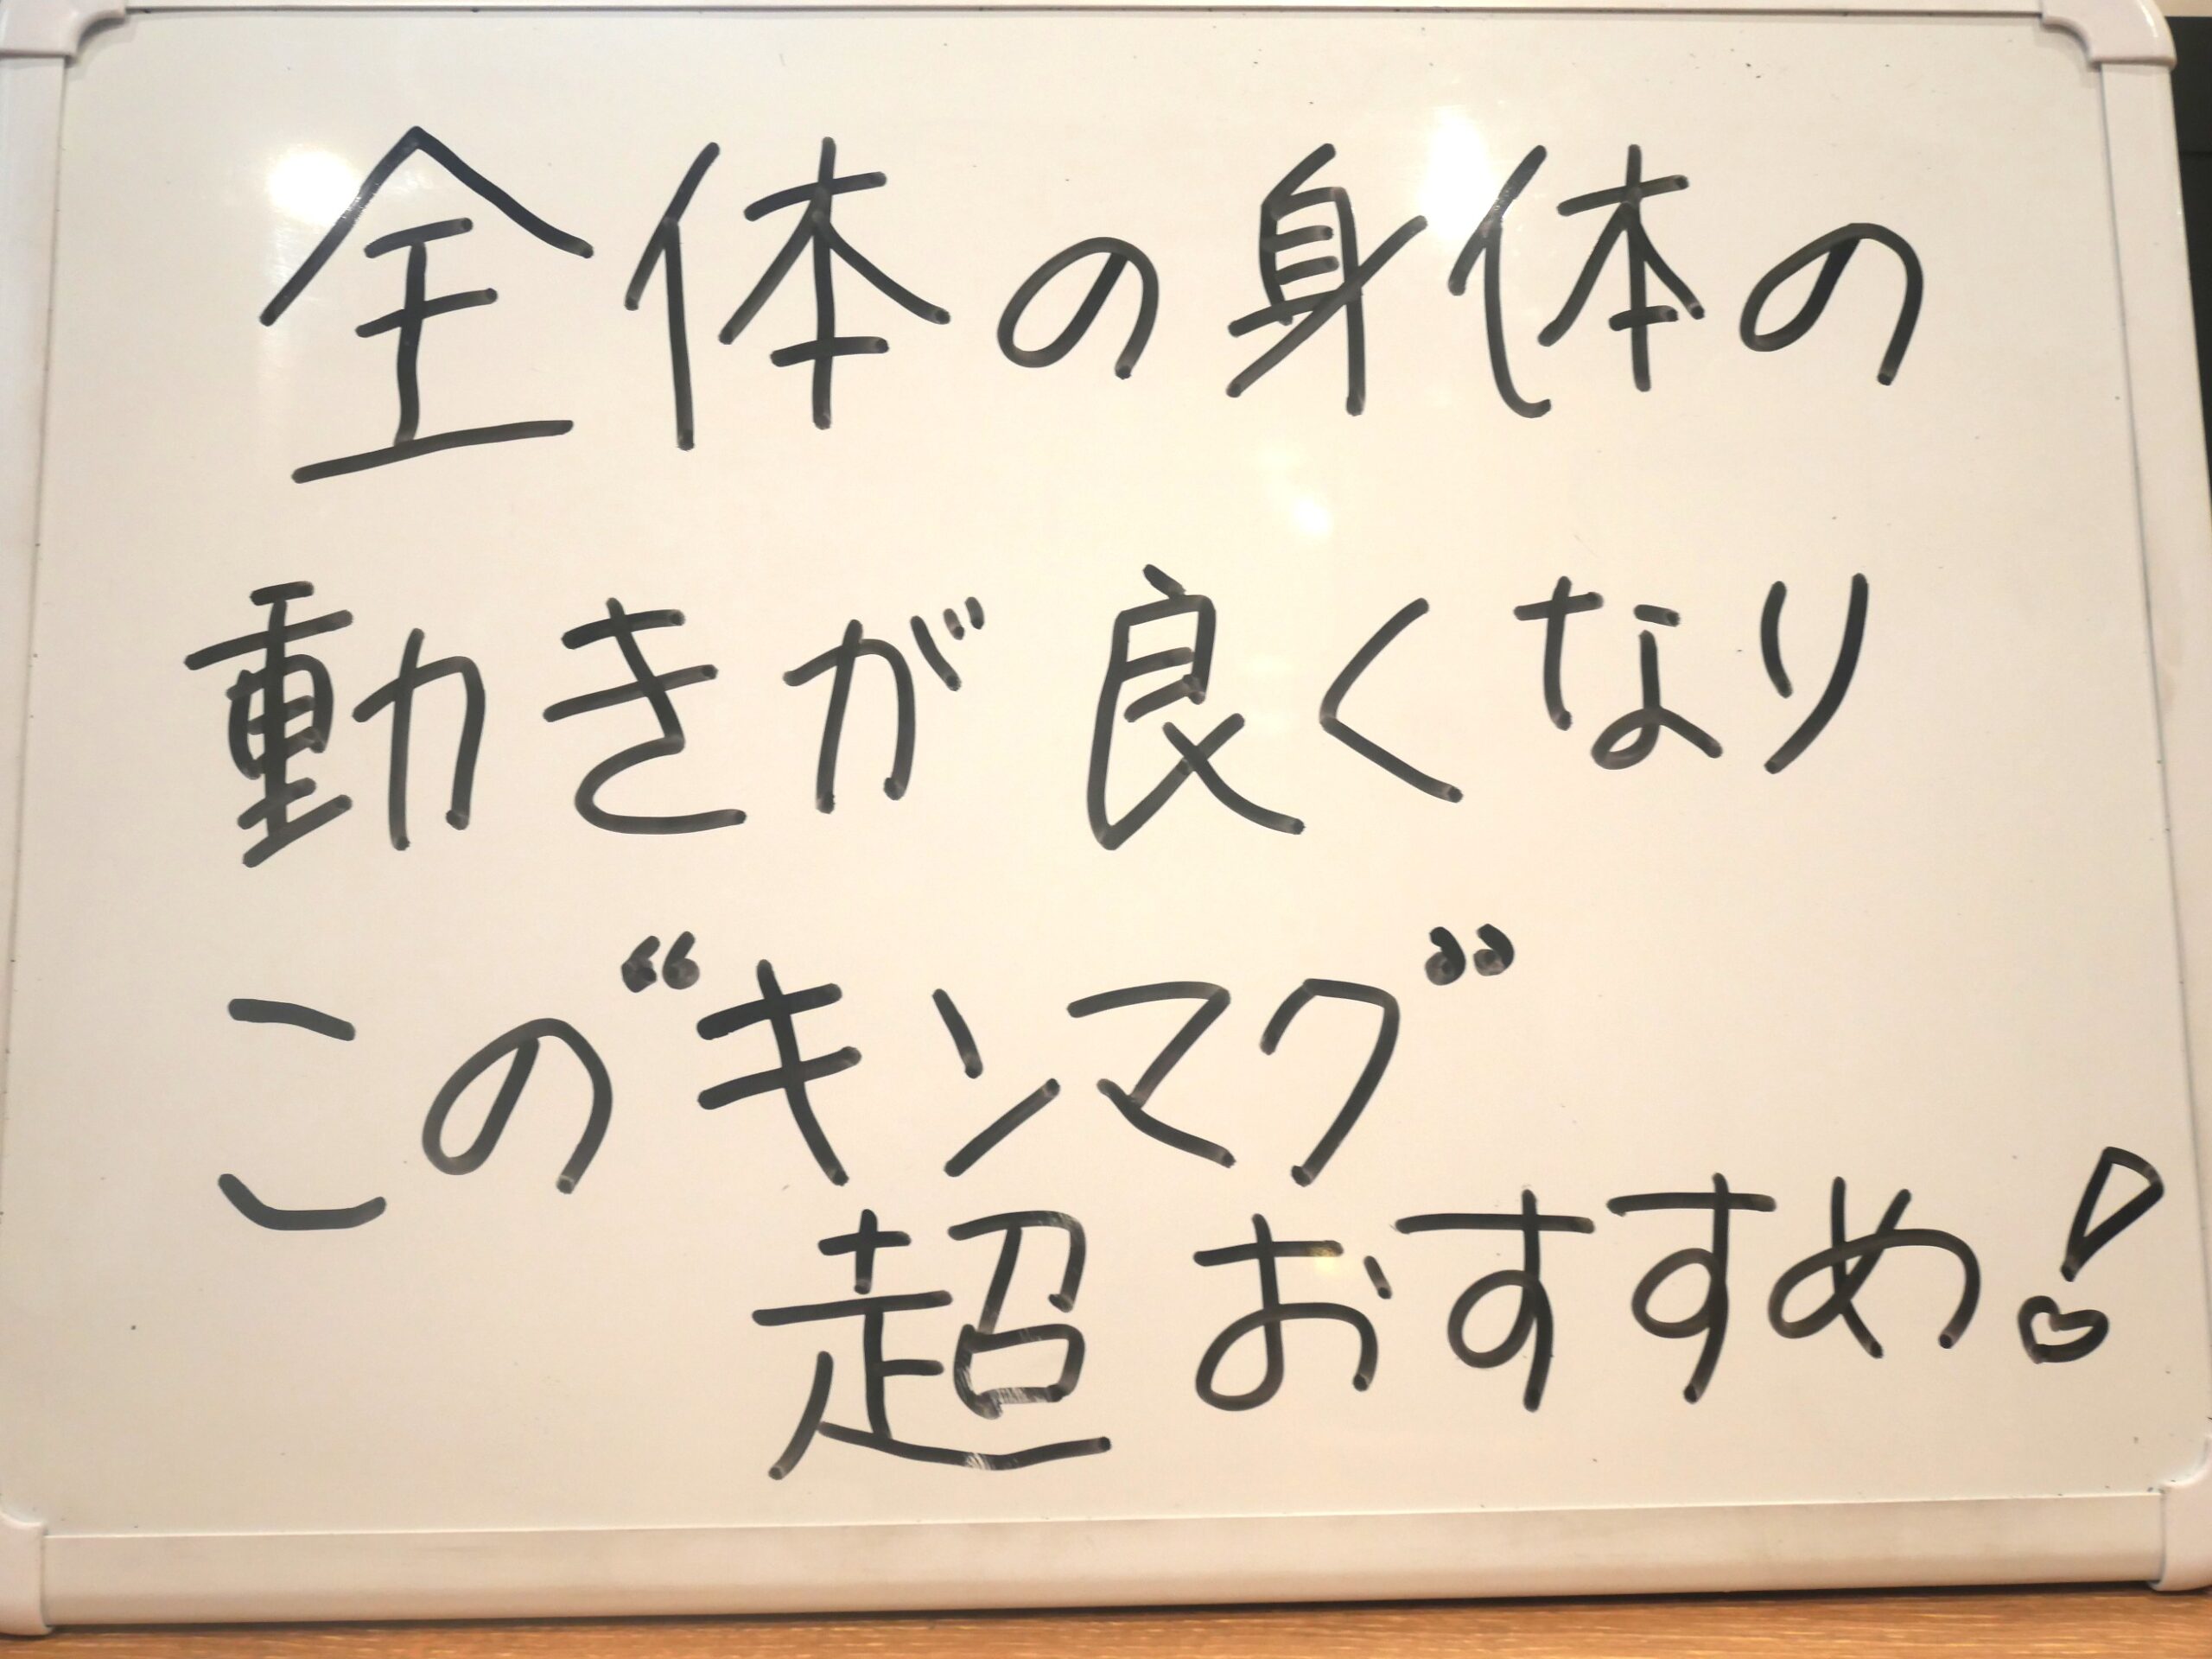 全体の身体の
動きが良くなり
この“キンマク”
超おすすめ!